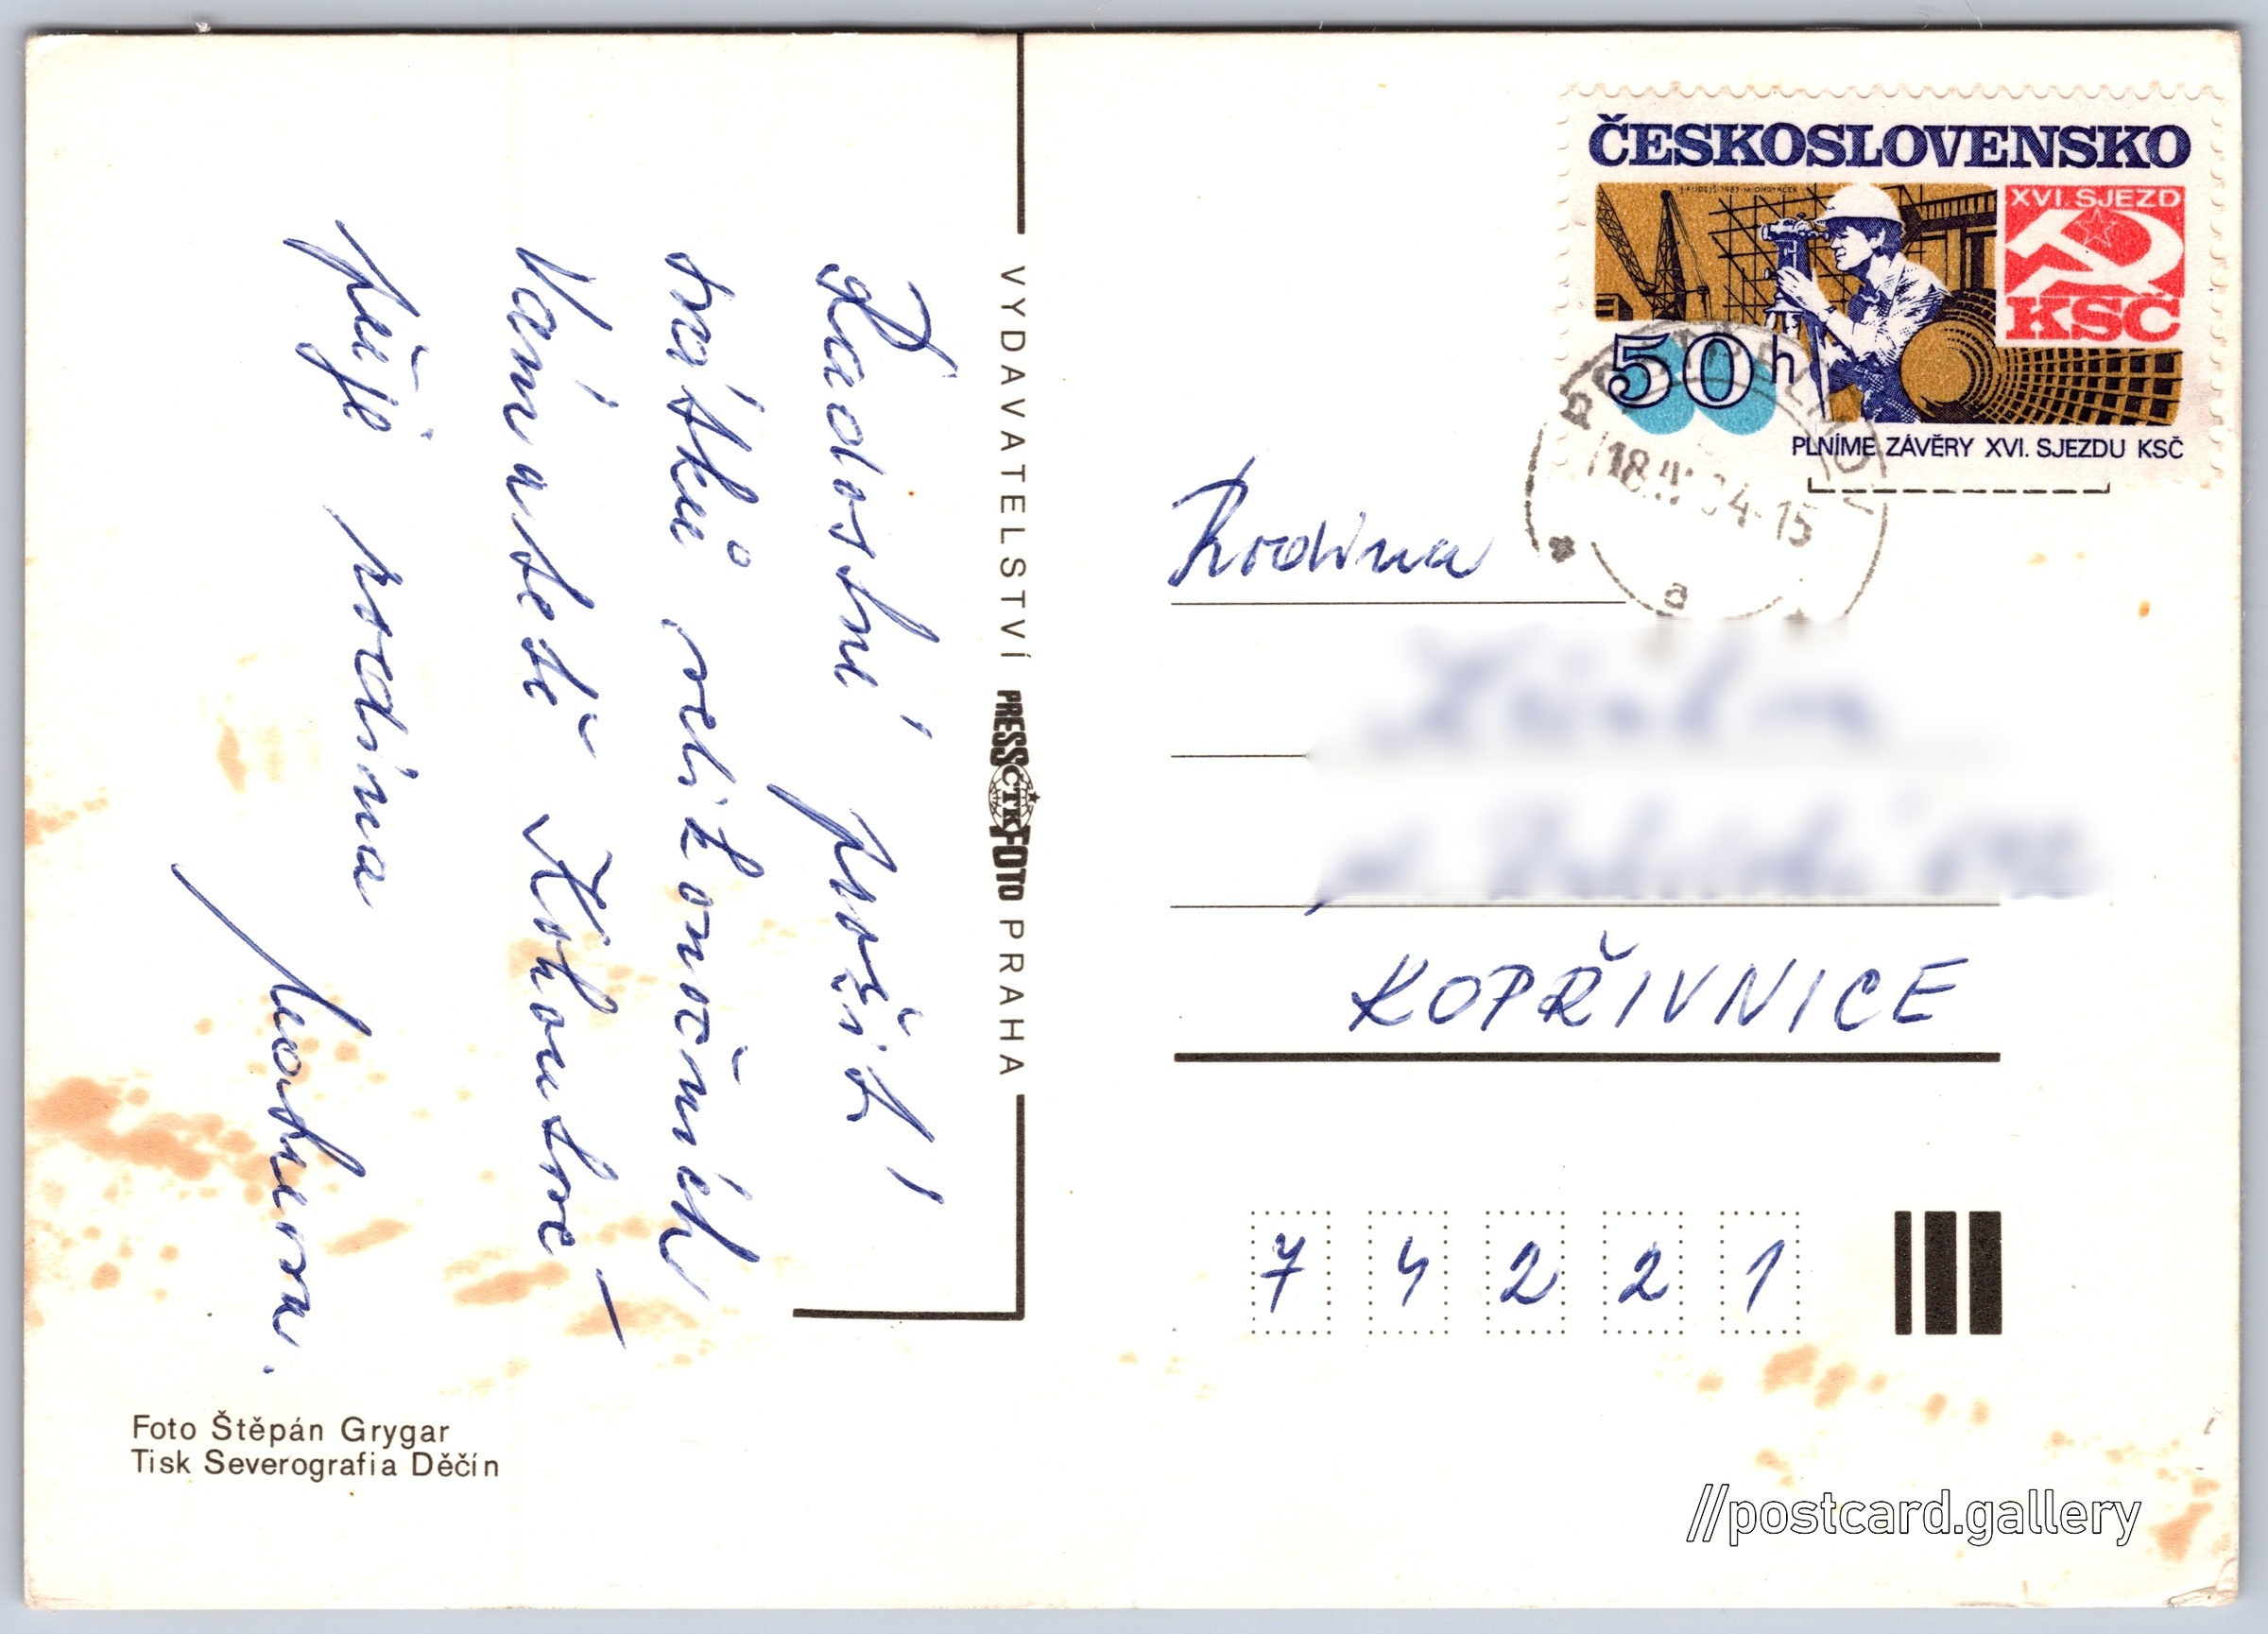 Radostné prožití
svátků velikonočních
Vám a tetě Kohoutové
přeje rodina
VYDAVATELSTVÍ PRESSFOTO PRAHA
ČTK
Foto Štěpán Grygar
Tisk Severografia Děčín
ČESKOSLOVENSKO
J. KODEJŠ 1983 M. ONDRÁČEK
XVI. SJEZD
KSČ
50 h
PLNÍME ZÁVĚRY XVI. SJEZDU KSČ
84-15
a
Rodina
KOPŘIVNICE
7 4 2 2 1
//postcard.gallery